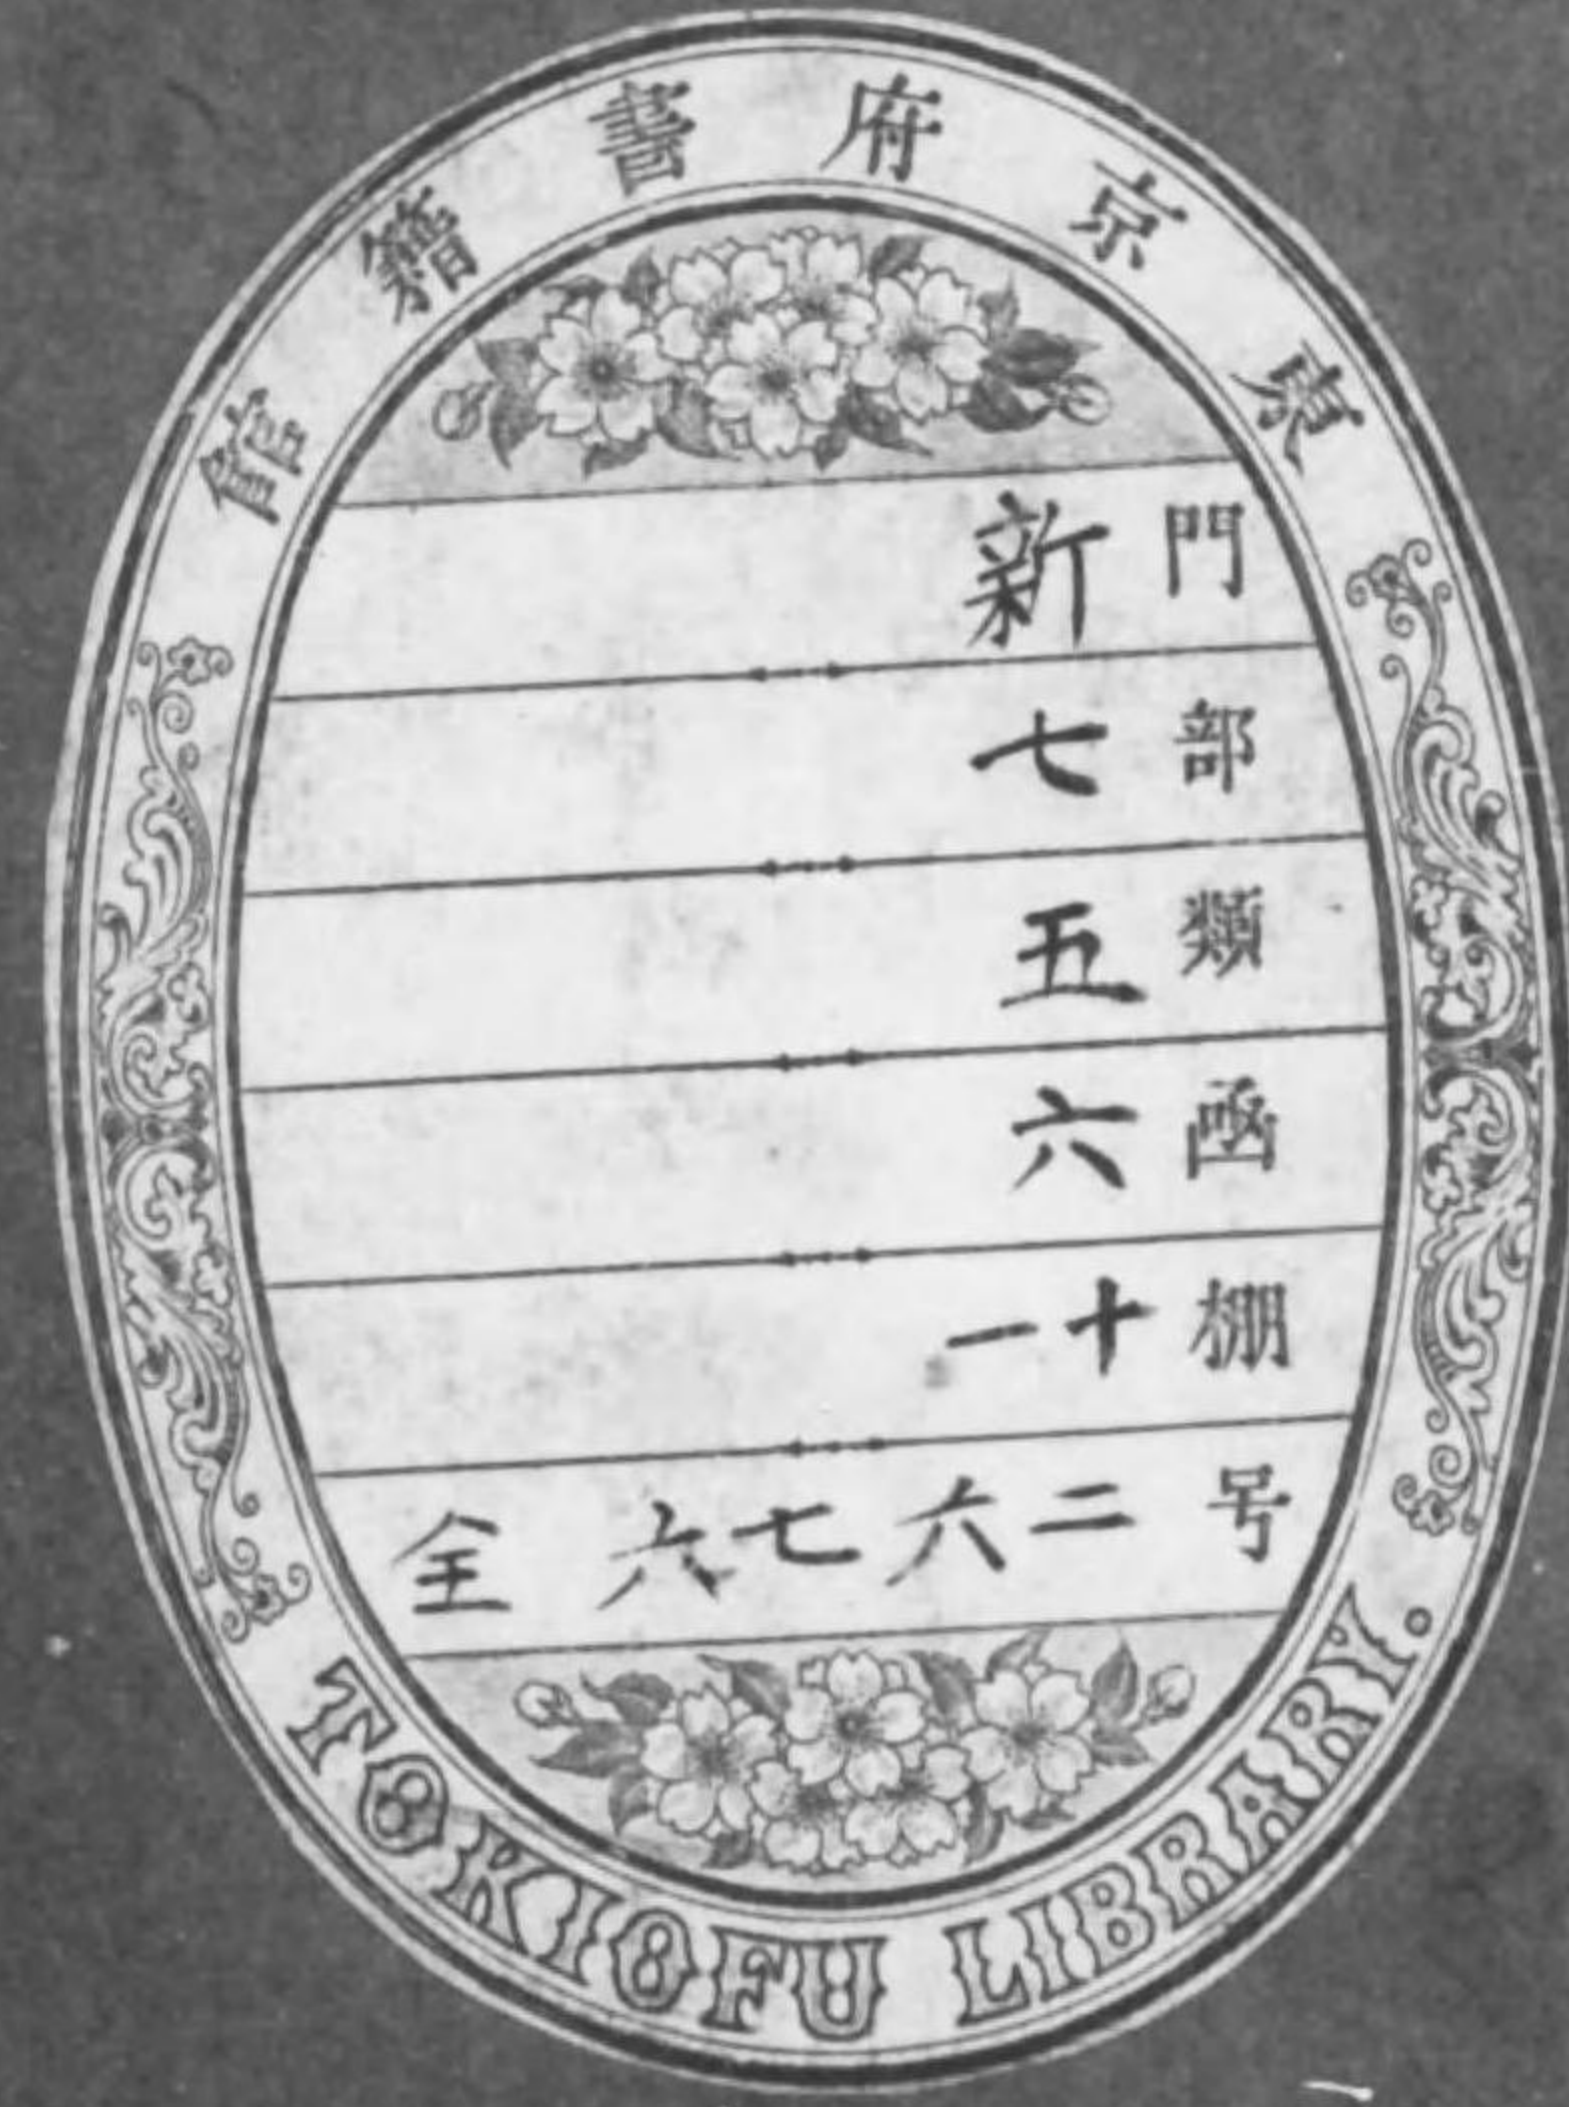 東京府書籍館
門 新
部 七
類 五
函 六
棚 十一
号 二六七六 全
TOKIOFU LIBRARY.